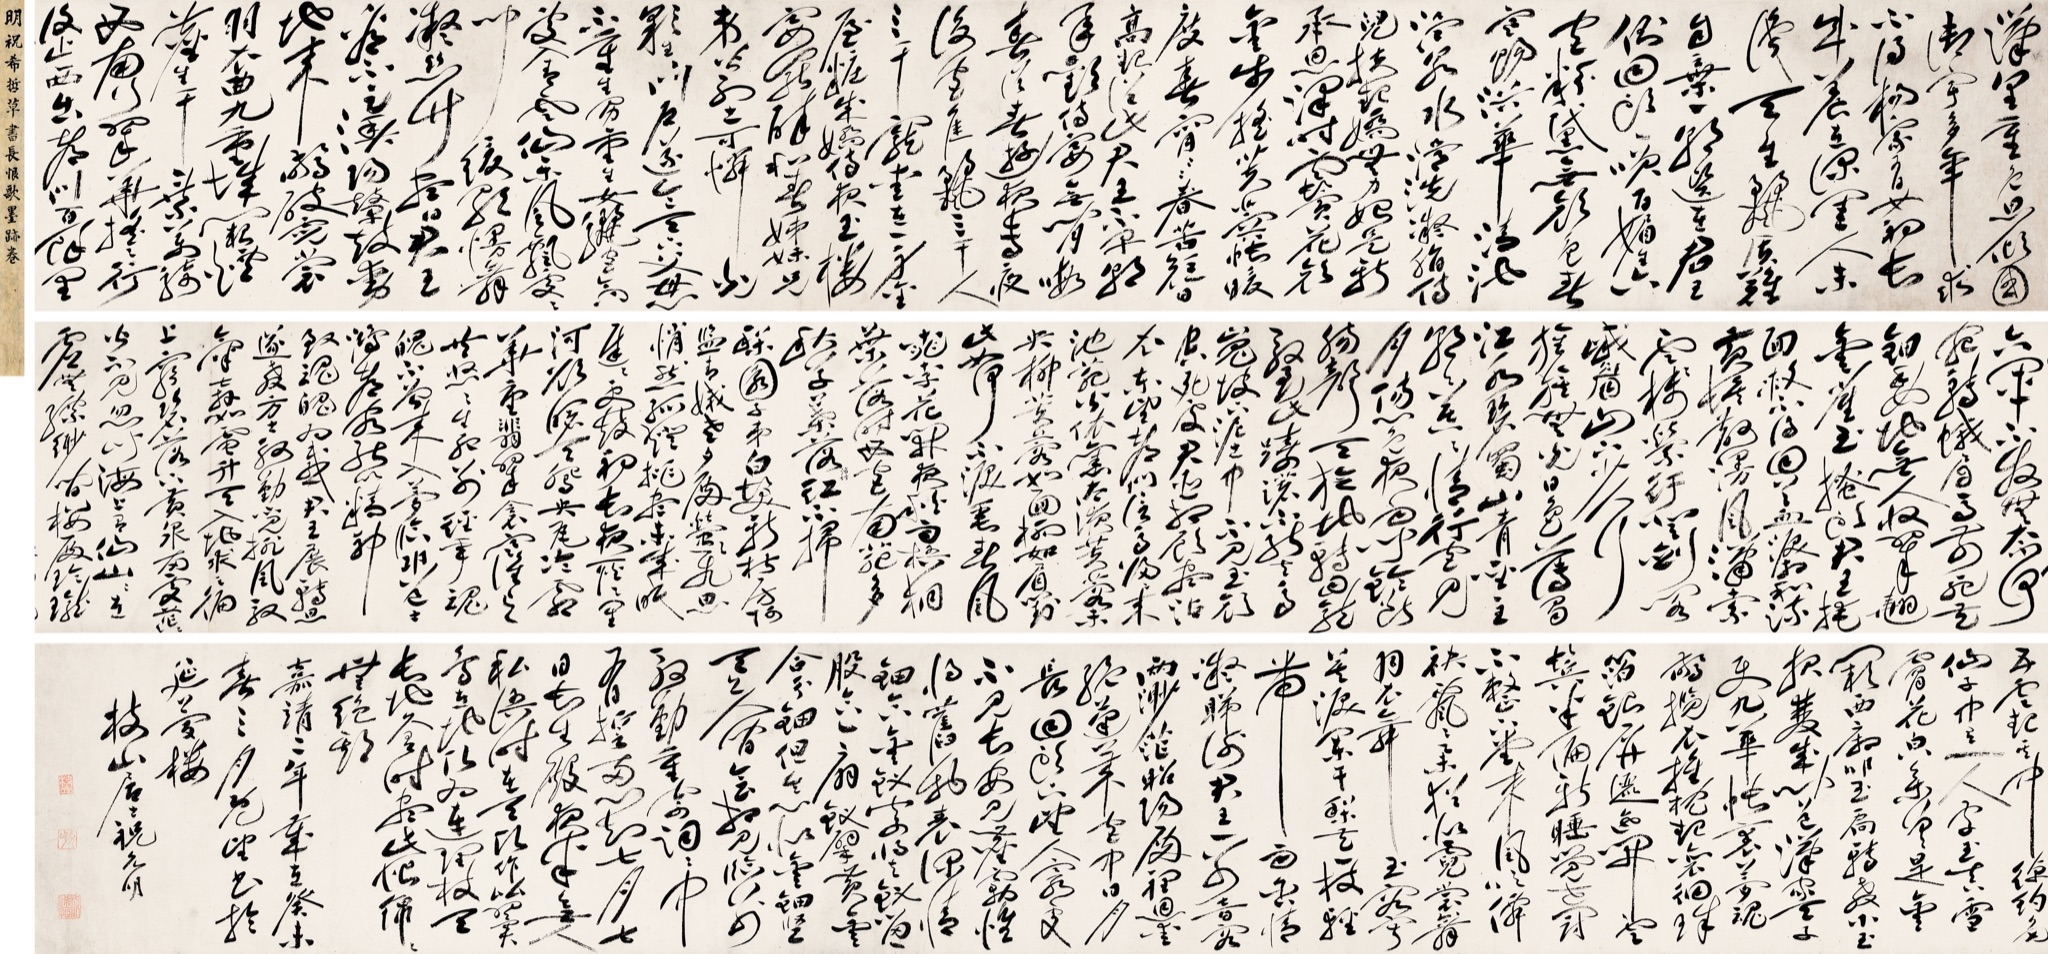 明祝希哲草書長恨歌墨跡卷
漢皇重色思傾國
御宇多年求
不得楊家有女初長
成養在深閨人未
識天生麗質難
自棄一朝選在君王
側回頭一笑百媚生六
宮粉黛無顏色春
寒賜浴華清池
溫泉水滑洗凝脂侍
兒扶起嬌無力始是新
承恩澤時雲鬢花顏
金步搖芙蓉帳暖
度春宵春宵苦短日
高起從此君王不早朝
承歡侍宴無閒暇
春從春遊夜專夜
後宮佳麗三千人
三千寵愛在一身金
屋妝成嬌侍夜玉樓
宴罷醉和春姊妹兄
弟皆列土可憐光
彩生門戶遂令天下父母心
不重生男重生女驪宮高
處入青雲仙樂風飄處處
聞緩歌慢舞
凝絲竹盡日君王
看不足漁陽鼙鼓動
地來驚破霓裳
羽衣曲九重城闕煙
塵生千乘萬騎
西南行翠華搖搖行
復止西出都門百餘里
六軍不發無奈何
宛轉蛾眉馬前死花
鈿委地無人收翠翹
金雀玉搔頭君王掩
面救不得回看血淚相和流
黃埃散漫風蕭索
雲棧縈紆登劍閣
峨嵋山下少人行
旌旗無光日色薄蜀
江水碧蜀山青聖主
朝朝暮暮情行宮見
月傷心色夜雨聞鈴斷
腸聲天旋地轉迴龍
馭到此躊躇不能去馬
嵬坡下泥土中不見玉顏
空死處君臣相顧盡沾
衣東望都門信馬歸來
池苑皆依舊太液芙蓉未
央柳芙蓉如面柳如眉對
此如何不淚垂春風
桃李花開夜秋雨梧桐
葉落時西宮南苑多
秋草葉落紅不掃
梨園子弟白髮新椒房
監青娥老夕殿螢飛思
悄然孤燈挑盡未成眠
遲遲更鼓初長夜耿耿星
河欲曙天鴛鴦瓦冷霜
華重翡翠衾寒誰與
共悠悠生死別經年魂
魄不曾來入夢臨邛道士
鴻都客能以精神
致魂魄為感君王展轉思
遂教方士殷勤覓排風馭
氣奔如電升天入地求之遍
上窮碧落下黃泉兩處茫茫
皆不見忽聞海上有仙山山在
虛無縹緲間樓殿玲瓏
五雲起其中綽約多
仙子中有一人字玉真雪
膚花貌參差是金
闕西廂叩玉扃轉教小玉
報雙成聞道漢家天子
使九華帳裏夢魂
驚攬衣推枕起徘徊珠
箔銀屏邐迤開雲
鬢半偏新睡覺花冠
不整下堂來風吹仙
袂飄飄舉猶似霓裳
羽衣舞玉容寂
寞淚闌干梨花一枝
春帶雨含情
凝睇謝君王一別音容
兩渺茫昭陽殿裡恩愛
絕蓬萊宮中日月
長回頭下望人寰處
不見長安見塵霧惟
將舊物表深情
鈿合金釵寄將去釵留一
股合一扇釵擘黃金
合分鈿但令心似金鈿堅
天上人間會相見臨別
殷勤重寄詞詞中
有誓兩心知七月七
日長生殿夜半無人
私語時在天願作比翼
鳥在地願為連理枝天
長地久有時盡此恨綿綿
無絕期
嘉靖二年歲在癸未
春三月既望書於
樓
枝山居士祝允明